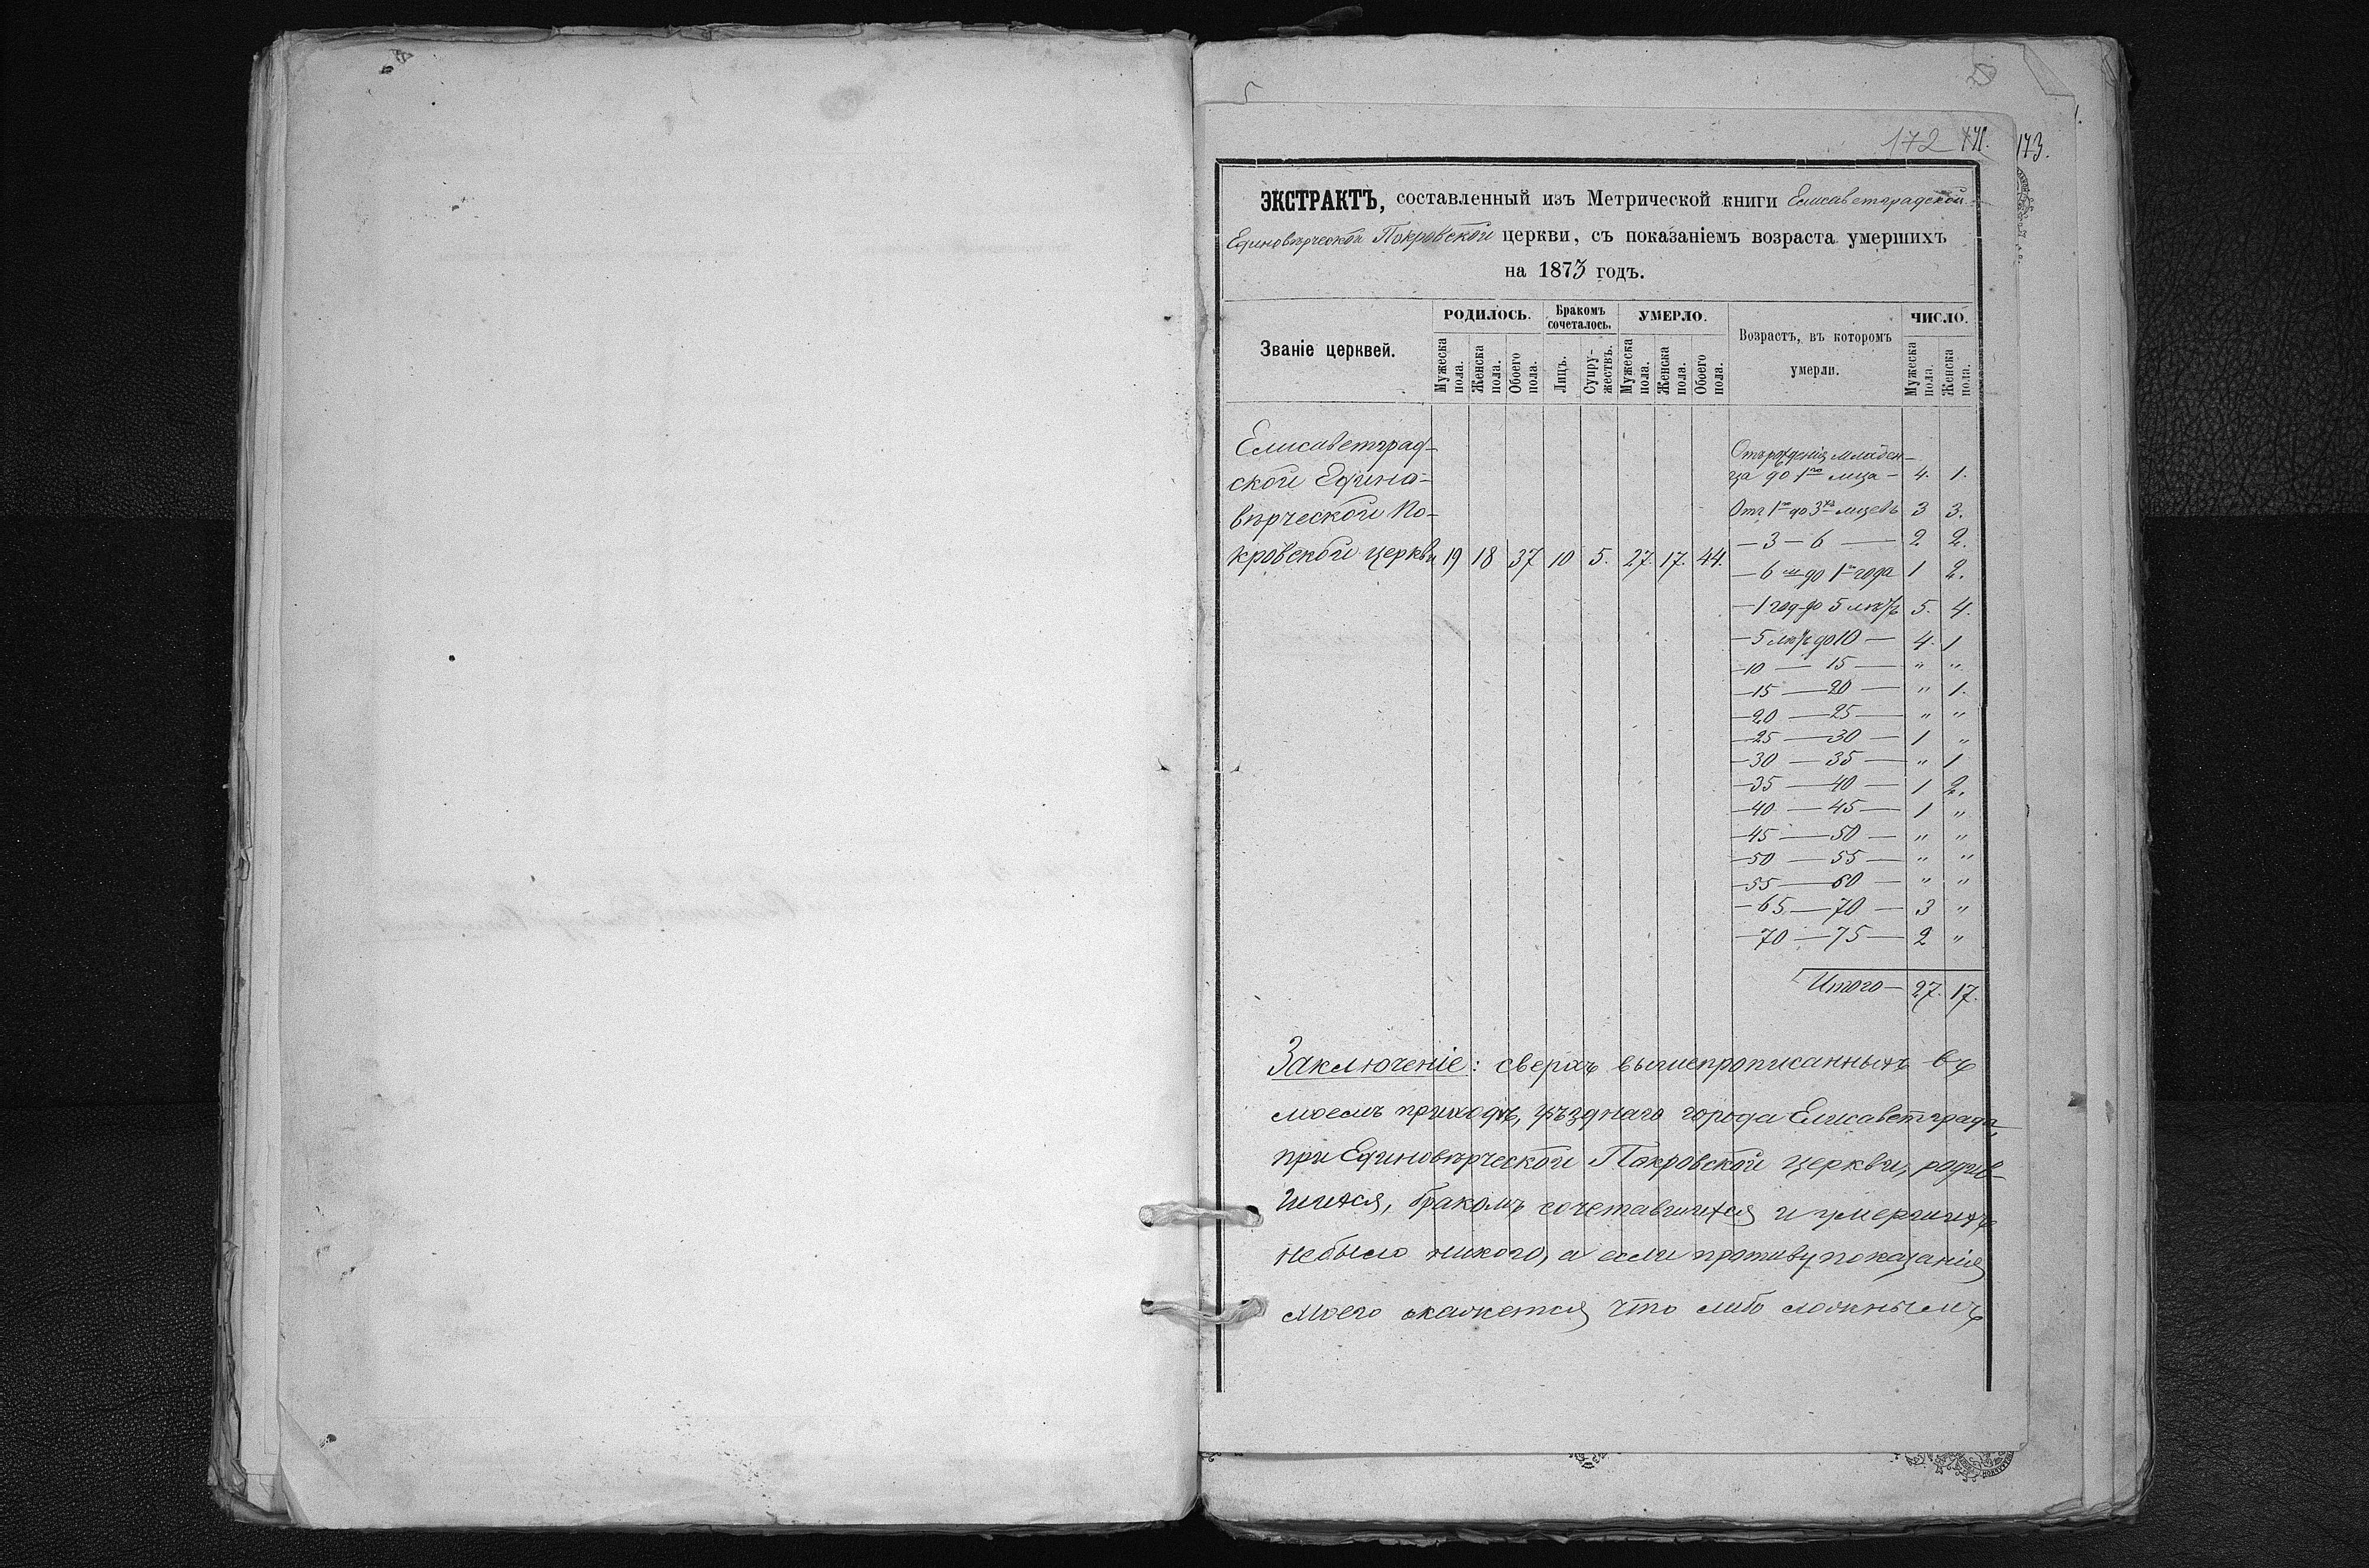 172 171. 173.
ЭКСТРАКТЪ, составленный изъ Метрической книги Елисаветградской
Единовѣрческой Покровской церкви, съ показаніемъ возраста умершихъ
на 1873 годъ.
Званіе церквей. РОДИЛОСЬ. Бракомъ сочеталось. УМЕРЛО. Возрастъ, въ которомъ умерли. ЧИСЛО.
Мужеска пола. Женска пола. Обоего пола. Лицъ. Супружествъ. Мужеска пола. Женска пола. Обоего пола. Мужеска пола. Женска пола.
Елисаветград-
ской Едино-
вѣрческой По-
кровской церкви 19 18 37 10 5. 27. 17. 44.
Отъ рожденія младен-
ца до 1го мца — 4. 1.
Отъ 1го до 3хъ мцевъ 3 3.
— 3 — 6 — 2 2.
— 6 м до 1го года 1 2.
— 1 год. до 5 лѣтъ 5. 4.
— 5 лѣтъ до 10 — 4. 1
— 10 — 15 — " "
— 15 — 20 — " 1.
— 20 — 25 — " "
— 25 — 30 — 1 "
— 30 — 35 — " 1
— 35 — 40 — 1 2.
— 40 — 45 — 1 "
— 45 — 50 — " "
— 50 — 55 — " "
— 55 — 60 — " "
— 65 — 70 — 3 "
— 70 — 75 — 2 "
Итого — 27. 17.
Заключеніе: сверхъ вышепрописанныхъ въ
моемъ приходѣ, уѣзднаго города Елисаветграда,
при Единовѣрческой Покровской церкви, родив-
шихся, бракомъ сочетавшихся и умершихъ
небыло никого, а если противу показанія
моего окажется что либо ложнымъ